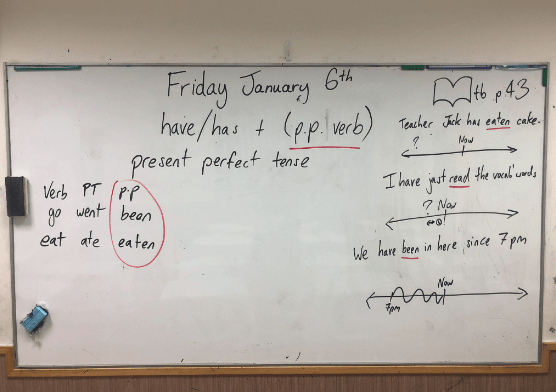 Friday January 6th
have/has + (p.p. verb)
present perfect tense
Verb PT p.p
go went been
eat ate eaten
tb p.43
Teacher Jack has eaten cake.
? Now
I have just read the vocab words
? Now
We have been in here since 7pm
Now
7pm